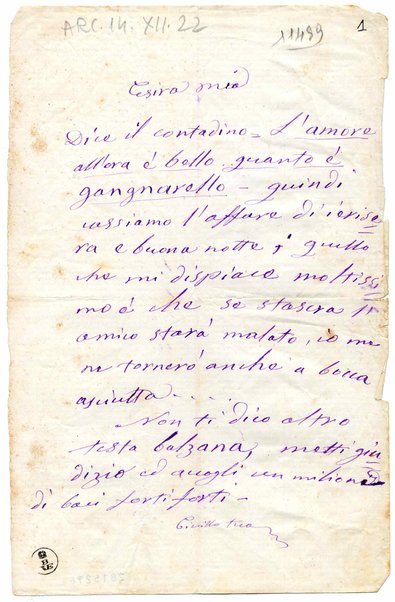 ARC. 14. XII. 22
11499
1
Tesira mia
Dice il contadino = L'amore
allora é bello quanto é
gangnarello - quindi
cassiamo l'affare di ierise
ra e buona notte; quello
che mi dispiace moltissi
mo é che se stasera l'
amico stará malato, io me
ne torneró anche a bocca
asciutta.....
Non ti dico altro
testa balzana, metti giu
dizio ed accogli un milione
di baci forti forti -
tuo